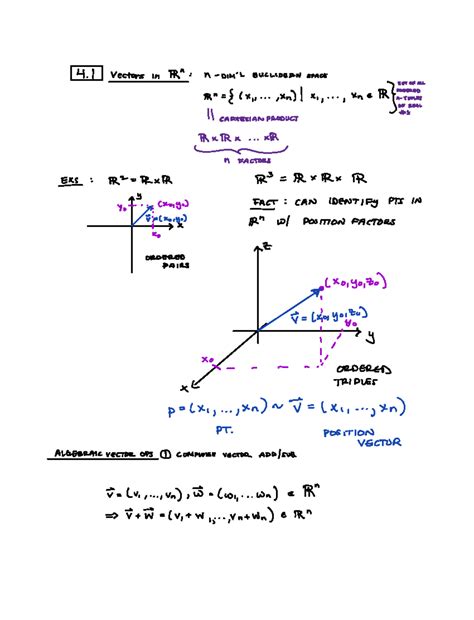 4.1 Vectors in ℝⁿ: n-DIM'L EUCLIDEAN SPACE
ℝⁿ = { (x₁, ..., xₙ) | x₁, ..., xₙ ∈ ℝ }
SET OF ALL
ORDERED
n-TUPLES
OF REAL
#S
|| CARTESIAN PRODUCT
ℝ x ℝ x ... x ℝ
n FACTORS
EXS : ℝ² = ℝ x ℝ
ℝ³ = ℝ x ℝ x ℝ
y
y₀ (x₀,y₀)
v⃗ = (x₀,y₀)
x
x₀
ORDERED
PAIRS
FACT : CAN IDENTIFY PTS IN
ℝⁿ W/ POSITION FACTORS
z
(x₀, y₀, z₀)
v⃗ = (x₀, y₀, z₀)
y₀
y
x₀
x
ORDERED
TRIPLES
P = (x₁, ..., xₙ) ~ v⃗ = (x₁, ..., xₙ)
PT. POSITION
VECTOR
ALGEBRAIC VECTOR OPS ① COMPONENT VECTOR ADD/SUB
v⃗ = (v₁, ..., vₙ), w⃗ = (w₁, ... wₙ) ∈ ℝⁿ
⇒ v⃗ + w⃗ = (v₁ + w₁, ..., vₙ + wₙ) ∈ ℝⁿ